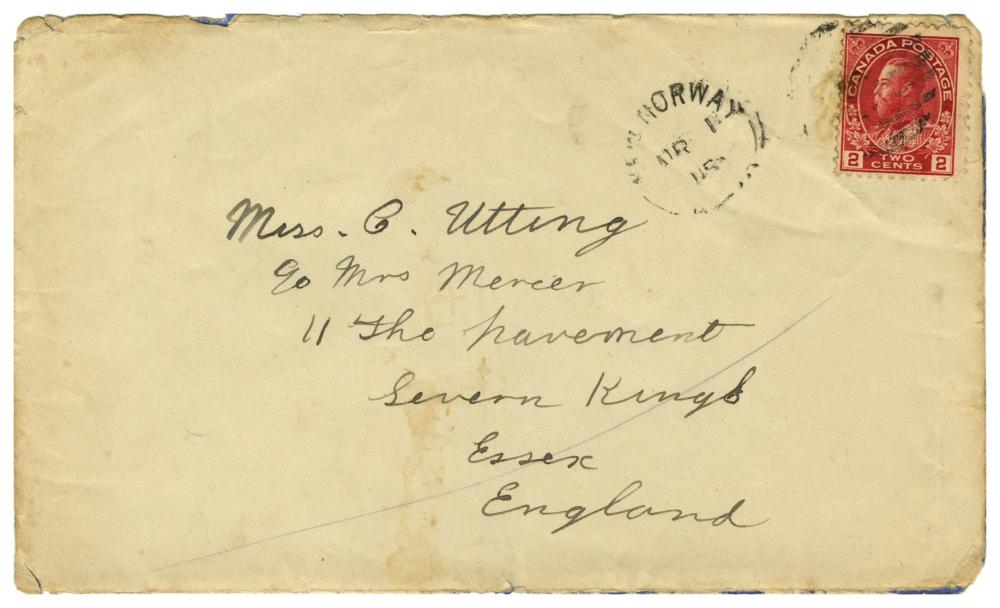 CANADA POSTAGE
2 TWO CENTS 2
NORWAY
Miss. C. Utting
c/o Mrs Mercer
11 The pavement
Severn Kings
Essex
England